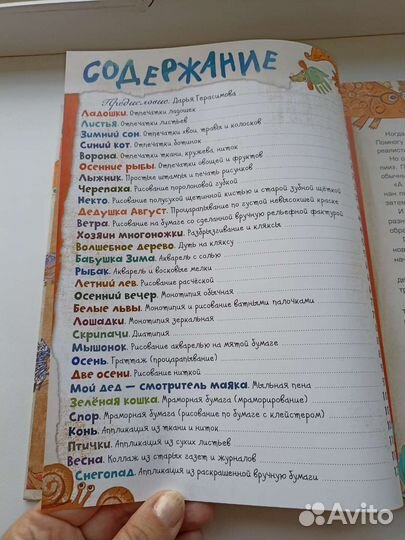 СОДЕРЖАНИЕ
Предисловие. Дарья Герасимова
Ладошки. Отпечатки ладошек
Листья. Отпечатки листьев
Зимний сон. Отпечатки хвои, травы и колосков
Синий кот. Отпечатки ботинок
Ворона. Отпечатки ткани, кружева, ниток
Осенние рыбы. Отпечатки овощей и фруктов
Лыжник. Простые штампы и печать рисунков
Черепаха. Рисование поролоновой губкой
Некто. Рисование полусухой щетинной кистью и старой зубной щёткой
Дедушка Август. Процарапывание по густой невысохшей краске
Ветра. Рисование на бумаге со сделанной вручную рельефной фактурой
Хозяин многоножки. Разбрызгивание и кляксы
Волшебное дерево. Дуть на кляксу
Бабушка Зима. Акварель с солью
Рыбак. Акварель и восковые мелки
Летний лев. Рисование расчёской
Осенний вечер. Монотипия обычная
Белые львы. Монотипия и рисование ватными палочками
Лошадки. Монотипия зеркальная
Скрипачи. Диатипия
Мышонок. Рисование акварелью на мятой бумаге
Осень. Граттаж (процарапывание)
Две осени. Рисование ниткой
Мой дед — смотритель маяка. Мыльная пена
Зелёная кошка. Мраморная бумага (мраморирование)
Спор. Мраморная бумага (рисование по бумаге с клейстером)
Конь. Аппликация из ткани и ниток
Птички. Аппликация из сухих листьев
Весна. Коллаж из старых газет и журналов
Снегопад. Аппликация из раскрашенной вручную бумаги
Когда
Помногу
реалисти
По
обычны
«А
Avito